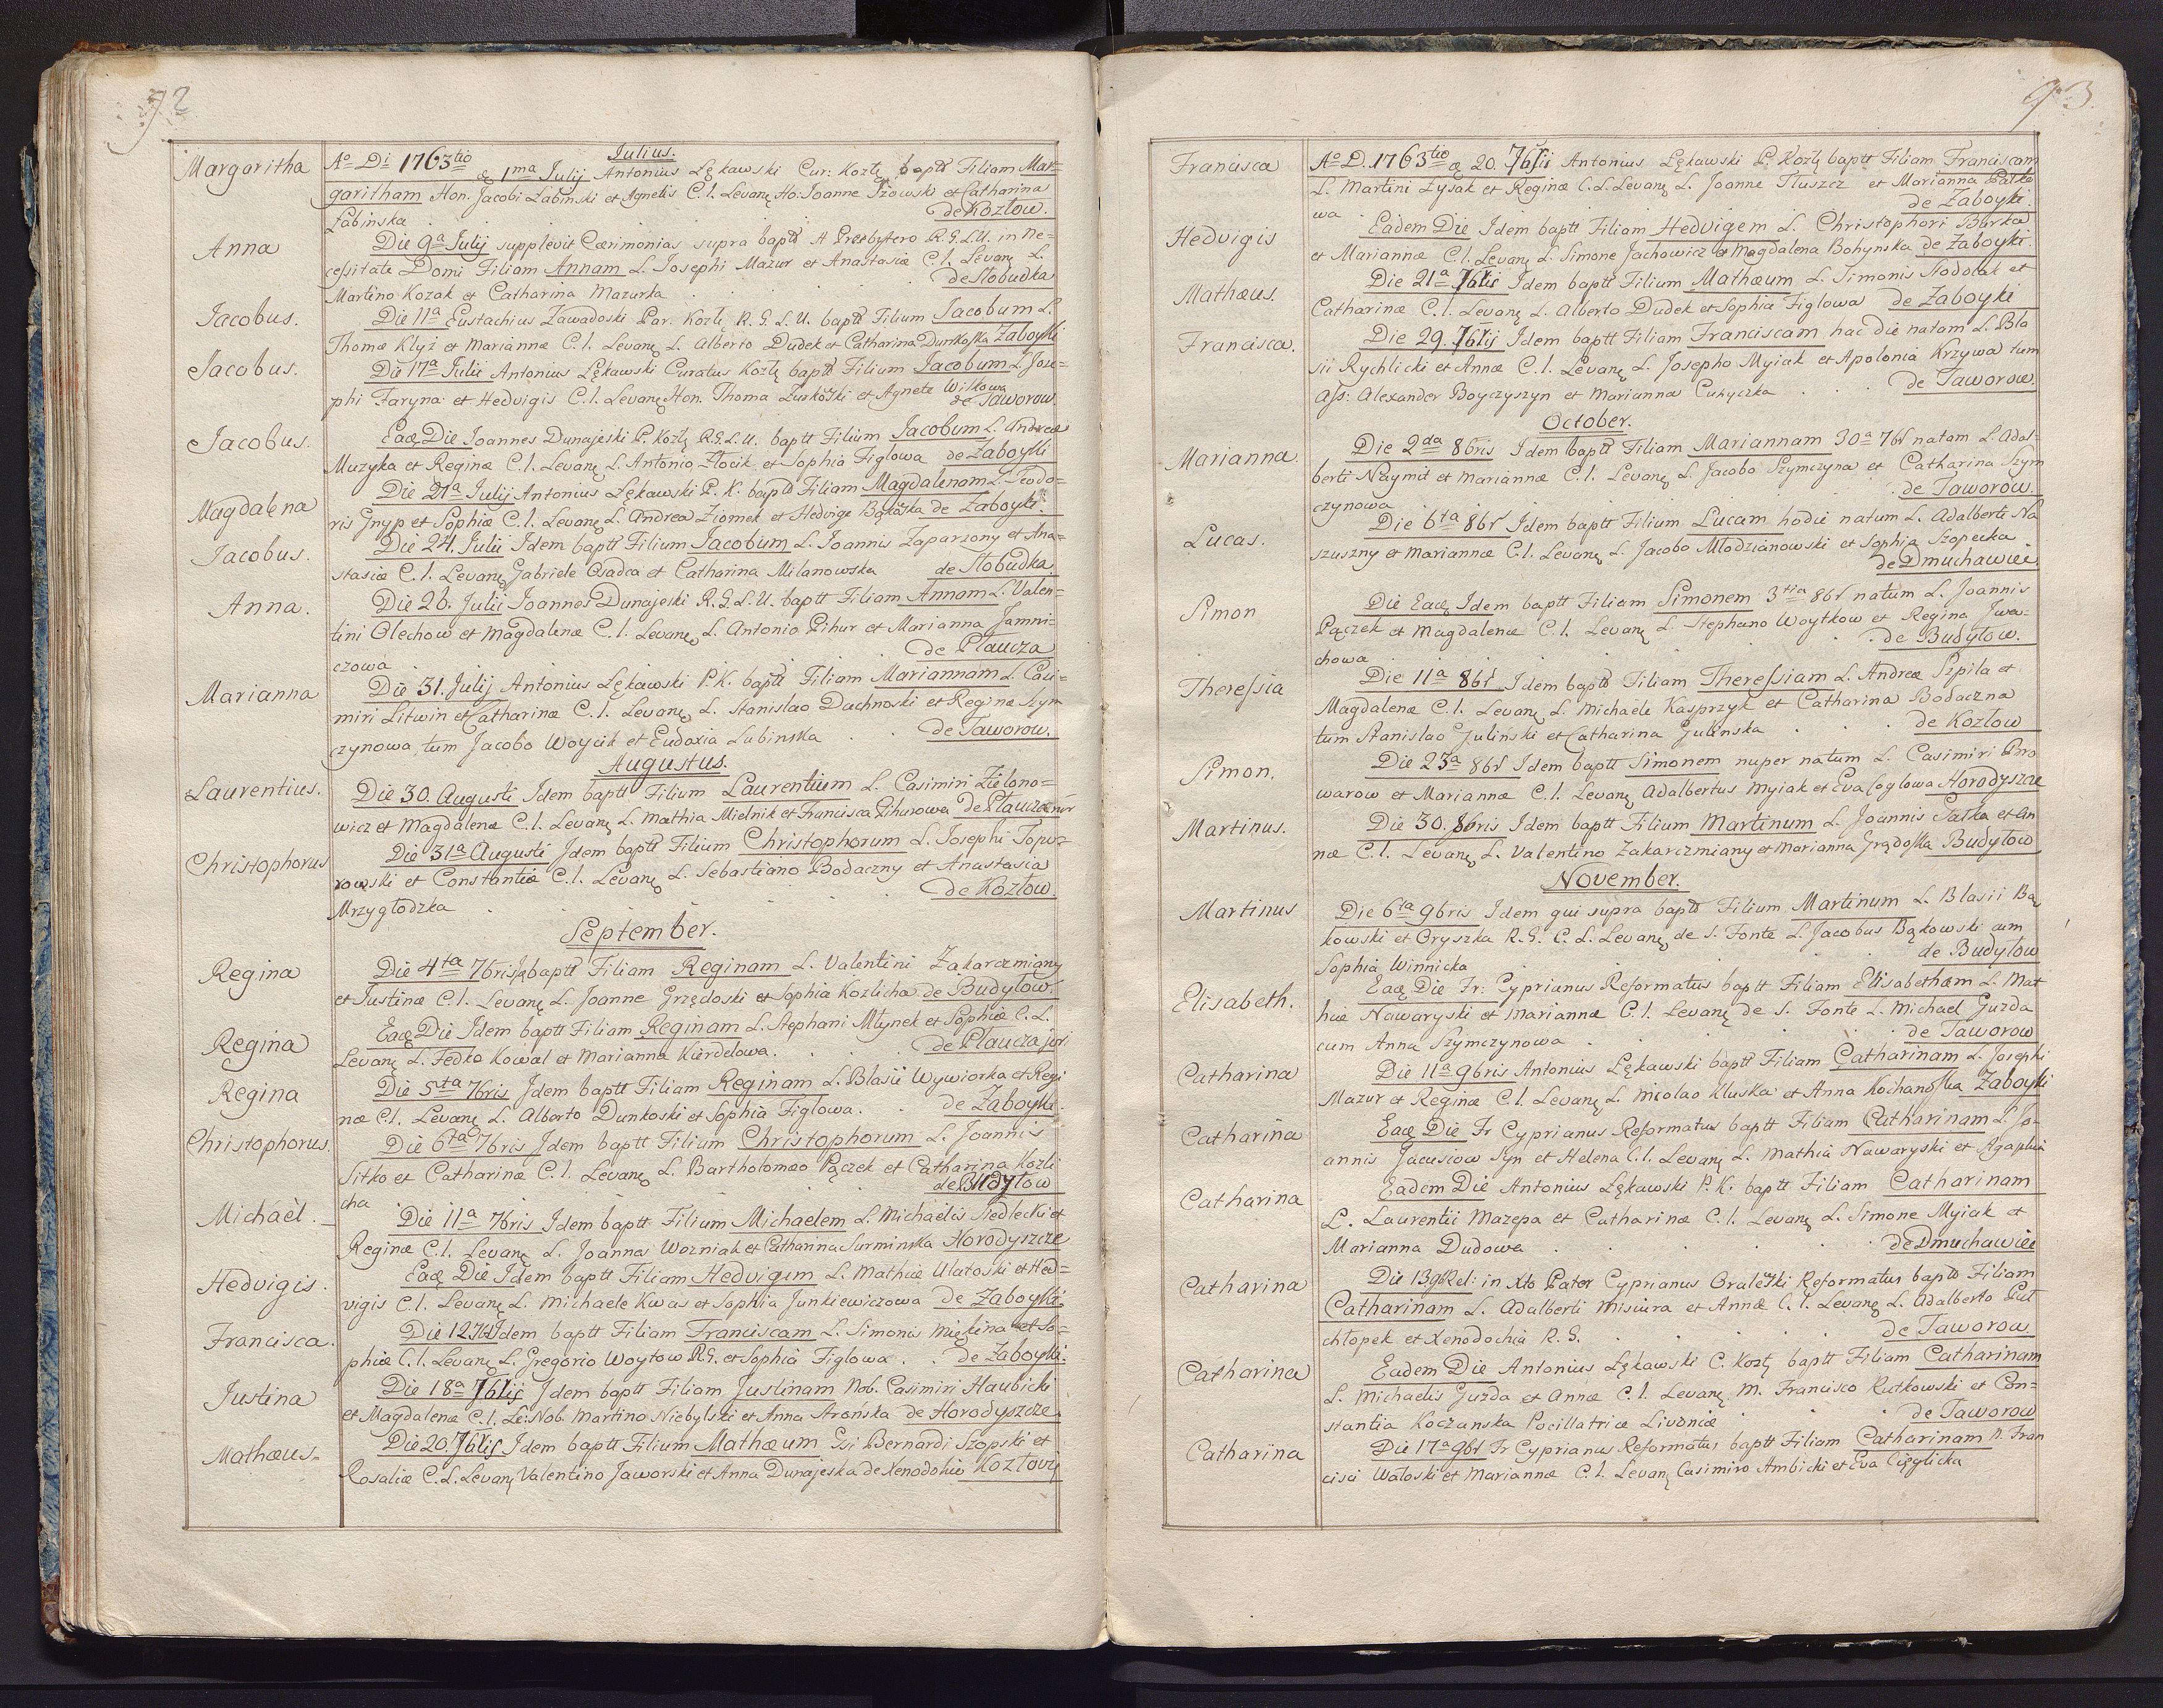 92
Julius.
Margaritha
Aº Di 1763tio 1ma Julij Antonius Lękawski Cur: Kozlę baptt Filiam Mar=
garitham Hon. Jacobi Labinski et Agnetis C. l. Levanę Ho: Joanne et Catharina
Labinska de Kozłow.
Anna
Die 9a Julij supplevit Cœrimonias supra baptt A Presbytero R. G. L. U. in Ne=
cessitate Domi Filiam Annam L. Josephi Mazur et Anastasiæ C. l. Levanę L.
Martino Kozak et Catharina Mazurka de Slobudka
Jacobus.
Die 11a Eustachius Zawadoski Par. Kozlę R. G. L. U. baptt Filium Jacobum L.
Thomæ Klyż et Mariannæ C. l. Levanę L. Alberto Dudek et Catharina Dunkoska Zaboyki
Jacobus.
Die 17a Julii Antonius Lękawski Curatus Kozlę baptt Filium Jacobum L. Jose=
phi Faryna et Hedvigis C. l. Levanę Hon. Thoma et Agnete Wilkowa
de Taworow.
Jacobus.
Eaę Die Joannes Dunajeski P. Kozlę R. G. L. U. baptt Filium Jacobum L. Andreæ
Muzyka et Reginæ C. l. Levanę L. Antonio Złocik et Sophia Figlowa de Zaboyki
Magdalena
Die 21a Julij Antonius Lękawski P. K. baptt Filiam Magdalenam L. Teodo=
ris Gnyp et Sophiæ C. l. Levanę L. Andrea Ziomek et Hedvige de Zaboyki.
Jacobus.
Die 24. Julii Idem baptt Filium Jacobum L. Joannis Zaparzony et Ana=
stasiæ C. l. Levanę Gabriele Osadca et Catharina Milanowska de Slobudka
Anna.
Die 26. Julii Joannes Dunajeski R. G. L. U. baptt Filiam Annam L. Valen=
tini Olechow et Magdalenæ C. l. Levanę L. Antonio Pihur et Marianna Jamni=
czowa de Plaucza
Marianna
Die 31. Julij Antonius Lękawski P. K. baptt Filiam Mariannam L. Casi=
miri Litwin et Catharinæ C. l. Levanę L. Stanislao Dachnoski et Reginæ Szym
czynowa, tum Jacobo Woycik et Eudoxia Lubinska de Taworow.
Augustus.
Laurentius.
Die 30. Augusti Idem baptt Filium Laurentium L. Casimiri Zielono=
wicz et Magdalenæ C. l. Levanę L. Mathia Mielnik et Francisca Pihurowa De Plaucza
Christophorus
Die 31a Augusti Idem baptt Filium Christophorum L. Josephi Topo=
rowski et Constantiæ C. l. Levanę L. Sebastiano Bodaczny et Anastasia
Mrzygłodzka de Kozłow.
September.
Regina
Die 4ta 7bris baptt Filiam Reginam L. Valentini Zakarczmiany
et Justinæ C. l. Levanę L. Joanne Grzędoski et Sophia Kozlicha de Budyłow.
Regina
Eaę Die Idem baptt Filiam Reginam L. Stephani Młynek et Sophiæ C. L.
Levanę L. Fedko Kowal et Marianna Kierdelowa. de Plaucza
Regina
Die 5ta 7bris Idem baptt Filiam Reginam L. Blasii Wywiorka et Regi
næ C. l. Levanę L. Alberto Dunkoski et Sophia Figlowa. de Zaboyki.
Christophorus.
Die 6ta 7bris Idem baptt Filium Christophorum L. Joannis
Sitko et Catharinæ C. l. Levanę L. Bartholomæo Pączek et Catharina Kozli
cha de Budyłow
Michaël.
Die 11a 7bris Idem baptt Filium Michaelem L. Michaelis Siedlecki et
Reginæ C. l. Levanę L. Joanna Wozniak et Catharina Surminska Horodyszcze
Hedvigis.
Eaę Die Idem baptt Filiam Hedvigem L. Mathiæ Ulatoski et Hed=
vigis C. l. Levanę L. Michaele Kwas et Sophia Junkiewiczowa de Zaboyki.
Francisca.
Die 12 Idem baptt Filiam Franciscam L. Simonis Miękina et So=
phiæ C. l. Levanę L. Gregorio Woytow R. G. et Sophia Figlowa. de Zaboyki.
Justina
Die 18a 7bris Idem baptt Filiam Justinam Nob. Casimiri Haubicki
et Magdalenæ C. l. Le: Nob. Martino Niebylski et Anna Srońska de Horodyszcze
Mathæus.
Die 20. 7bris Idem baptt Filium Mathæum Gsi Bernardi Szopski et
Rosaliæ C. L. Levanę Valentino Jaworski et Anna Dunajeska de Xenodohio Kozlovię
93.
Francisca
Aº D. 1763tio 20. 7bris Antonius Lękawski P. Kozlę baptt Filiam Franciscam
L. Martini Lysak et Reginæ C. L. Levanę L. Joanne Tłuszcz et Marianna Palko
wa de Zaboyki.
Hedvigis
Eadem Die Idem baptt Filiam Hedvigem L. Christophori Burka
et Mariannæ C. l. Levanę L. Simone Jachowicz et Magdalena Bohynska de Zaboyki.
Mathæus.
Die 21a 7bris Idem baptt Filium Mathæum L. Simonis Stodolak et
Catharinæ C. l. Levanę L. Alberto Dudek et Sophia Figlowa de Zaboyki
Francisca.
Die 29. 7bris Idem baptt Filiam Franciscam hac die natam L. Bla
sii Rychlicki et Annæ C. l. Levanę L. Josepho Myiak et Apolonia Krzywa tum
Ass: Alexander Boyczyszyn et Marianna Cukyczka de Taworow.
October.
Marianna.
Die 2da 8bris Idem baptt Filiam Mariannam 30a 7br natam L. Adal=
berti Naymit et Mariannæ C. l. Levanę L. Jacobo Szymczyna et Catharina Szym
czynowa de Taworow.
Lucas.
Die 6ta 8br Idem baptt Filium Lucam hodie natum L. Adalberti Na
szuszny et Mariannæ C. l. Levanę L. Jacobo Młodzianowski et Sophia Szopecka
de Dmuchawiec.
Simon
Die Eaę Idem baptt Filiam Simonem 3tia 8br natum L. Joannis
Pączek et Magdalenæ C. l. Levanę L. Stephano Woytkow et Regina Jwa=
chowa de Budyłow.
Theressia
Die 11a 8br Idem baptt Filiam Theressiam L. Andreæ Szpila et
Magdalenæ C. l. Levanę L. Michaele Kasprzyk et Catharina Bodaczna
tum Stanislao Gulinski et Catharina Gulinska de Kozłow
Simon.
Die 23a 8br Idem baptt Simonem nuper natum L. Casimiri Bro
warow et Mariannæ C. l. Levanę Adalbertus Myiak et Eva Coglowa Horodyszcze
Martinus.
Die 30. 8bris Idem baptt Filium Martinum L. Joannis Sałka et An
næ C. l. Levanę L. Valentino Zakarczmiany et Marianna Grądoska Budyłow
November.
Martinus
Die 6ta 9bris Idem qui supra baptt Filium Martinum L. Blasii Bą
kowski et Oryszka R. G. C. L. Levanę de S. Fonte L. Jacobus Bąkowski cum
Sophia Winnicka de Budyłow
Elisabeth.
Eaę Die Fr: Cyprianus Reformatus baptt Filiam Elisabetham L. Mat
hiæ Nawaryski et Mariannæ C. l. Levanę de S. Fonte L. Michael Guzda
cum Anna Szymczynowa de Taworow
Catharina
Die 11a 9bris Antonius Lękawski baptt Filiam Catharinam L. Josephi
Mazur et Reginæ C. l. Levanę L. Nicolao Kluska et Anna Kochanoska Zaboyki
Catharina
Eaę Die Fr Cyprianus Reformatus baptt Filiam Catharinam L. Jo=
annis Jacusiow Syn et Helena C. l. Levanę L. Mathia Nawaryski et Agaphia
Catharina
Eadem Die Antonius Lękawski P. K. baptt Filiam Catharinam
L. Laurentii Mazepa et Catharinæ C. l. Levanę L. Simone Myiak et
Marianna Dudowa de Dmuchawiec
Catharina
Die 13 9br Rel: in Xto Pater Cyprianus Reformatus baptt Filiam
Catharinam L. Adalberti Misiura et Annæ C. l. Levanę L. Adalberto Puł
chłopek et Xenodochia R. G. de Taworow
Catharina
Eadem Die Antonius Lękawski C. Kozlę baptt Filiam Catharinam
L. Michaelis Guzda et Annæ C. l. Levanę M. Francisco Rutkowski et Con=
stantia Koczanska Pocillatrice Livoniæ de Taworow
Catharina
Die 17a 9br Fr Cyprianus Reformatus baptt Filiam Catharinam N. Fran
cisci Wałoski et Mariannæ C. l. Levanę Casimiro Ambicki et Eva Cięglicka